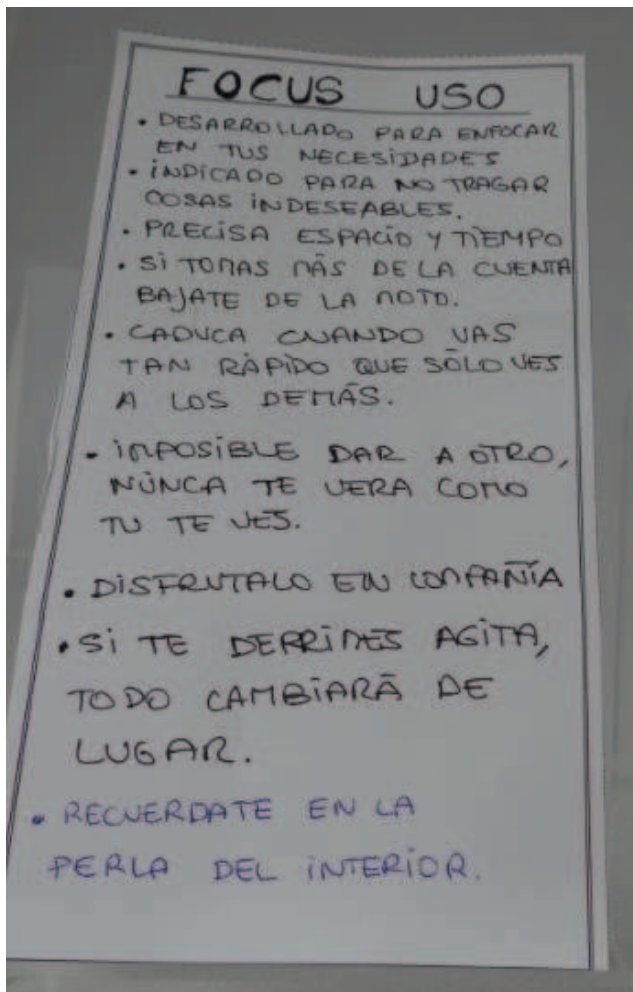 FOCUS USO
• DESARROLLADO PARA ENFOCAR
EN TUS NECESIDADES
• INDICADO PARA NO TRAGAR
COSAS INDESEABLES.
• PRECISA ESPACIO Y TIEMPO
• SI TOMAS MÁS DE LA CUENTA
BAJATE DE LA MOTO.
• CADUCA CUANDO VAS
TAN RÁPIDO QUE SÓLO VES
A LOS DEMÁS.
• IMPOSIBLE DAR A OTRO,
NÚNCA TE VERA COMO
TU TE VES.
• DISFRUTALO EN COMPAÑÍA
• SI TE DERRIMES AGITA,
TODO CAMBIARÁ DE
LUGAR.
• RECUERDATE EN LA
PERLA DEL INTERIOR.